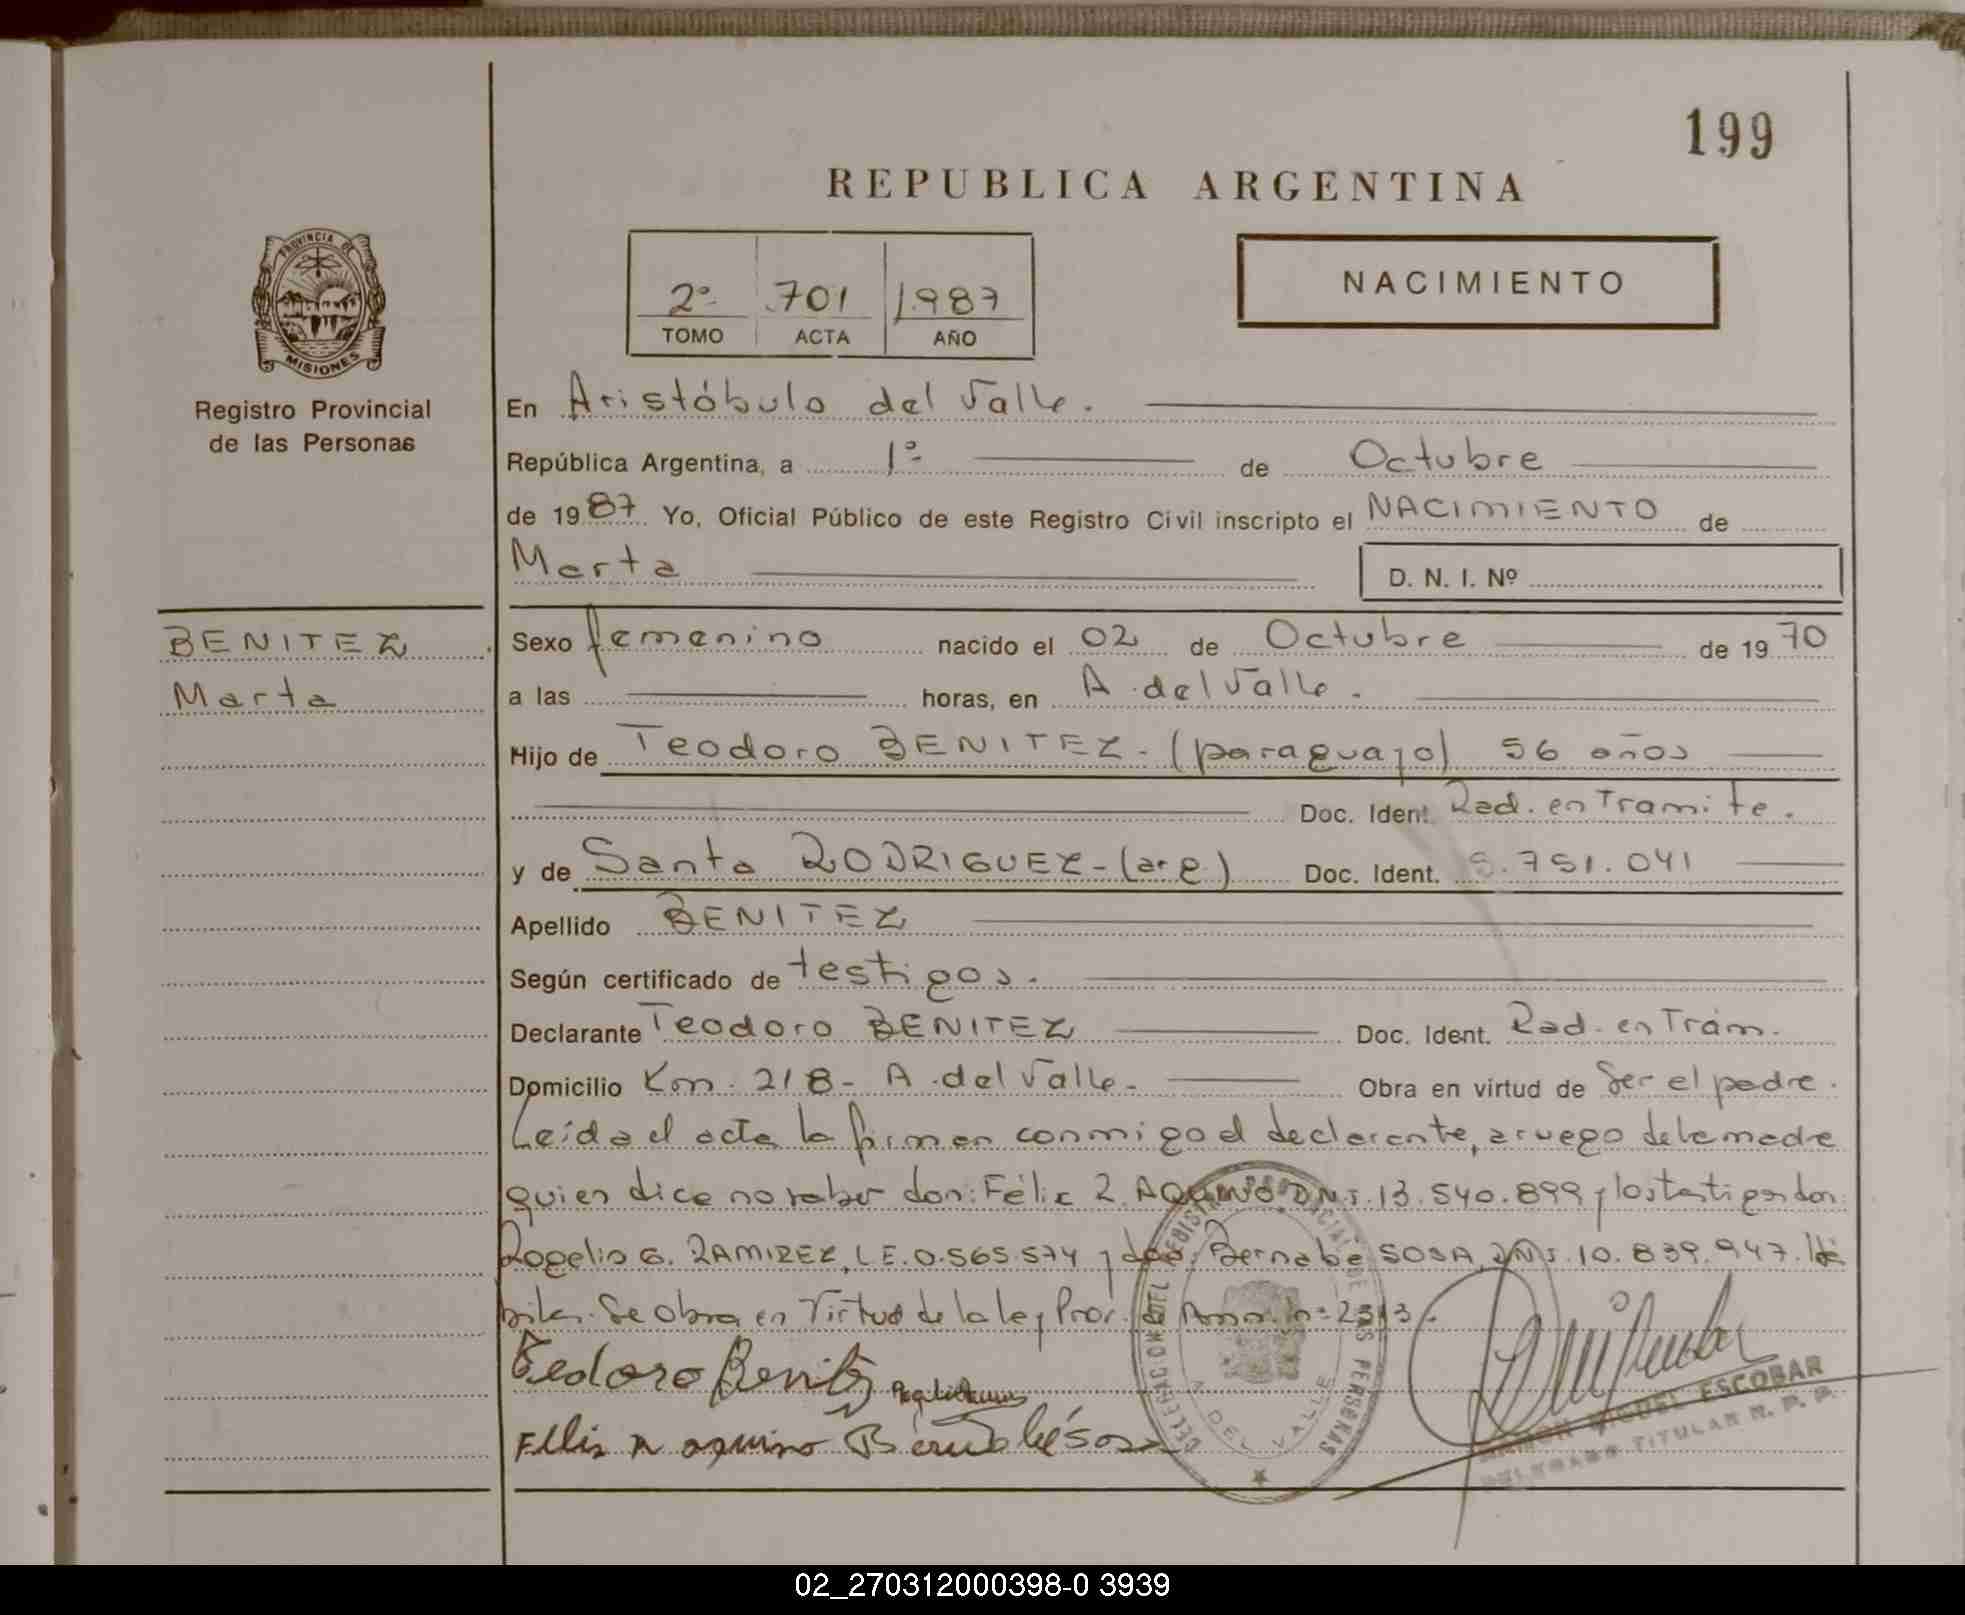 199
REPUBLICA ARGENTINA
2º 701 1987
TOMO ACTA AÑO
NACIMIENTO
PROVINCIA DE
MISIONES
Registro Provincial
de las Personas
En Aristóbulo del Valle.
República Argentina, a 1º de Octubre
de 1987 Yo, Oficial Público de este Registro Civil inscripto el NACIMIENTO de
Marta D. N. I. Nº
BENITEZ
Marta
Sexo femenino nacido el 02 de Octubre de 1970
a las horas, en A. del Valle.
Hijo de Teodoro BENITEZ - (paraguayo) 56 años
Doc. Ident. Rad. en Tramite.
y de Santa RODRIGUEZ - (arg.) Doc. Ident. 5.751.041
Apellido BENITEZ
Según certificado de testigos.
Declarante Teodoro BENITEZ Doc. Ident. Rad. en Trám.
Domicilio Km. 218 - A. del Valle - Obra en virtud de Ser el padre.
Leída el acta la firman conmigo el declarante, a ruego de la madre
quien dice no saber don: Félix R. AQUINO DNI. 13.540.899 y los testigos don:
Rogelio G. RAMIREZ, L.E. 0.565.574 y don: Bernabé SOSA, DNI. 10.839.947. há
biles. Se obra en Virtud de la ley Prov. de Amn. nº 2313.
Teodoro Benitez
Felix R aquino Bernabé Sosa
DELEGACION DEL REGISTRO PROVINCIAL DE LAS PERSONAS
A. DEL VALLE
RAMON MIGUEL ESCOBAR
DELEGADO TITULAR R. P. P.
02_270312000398-0 3939